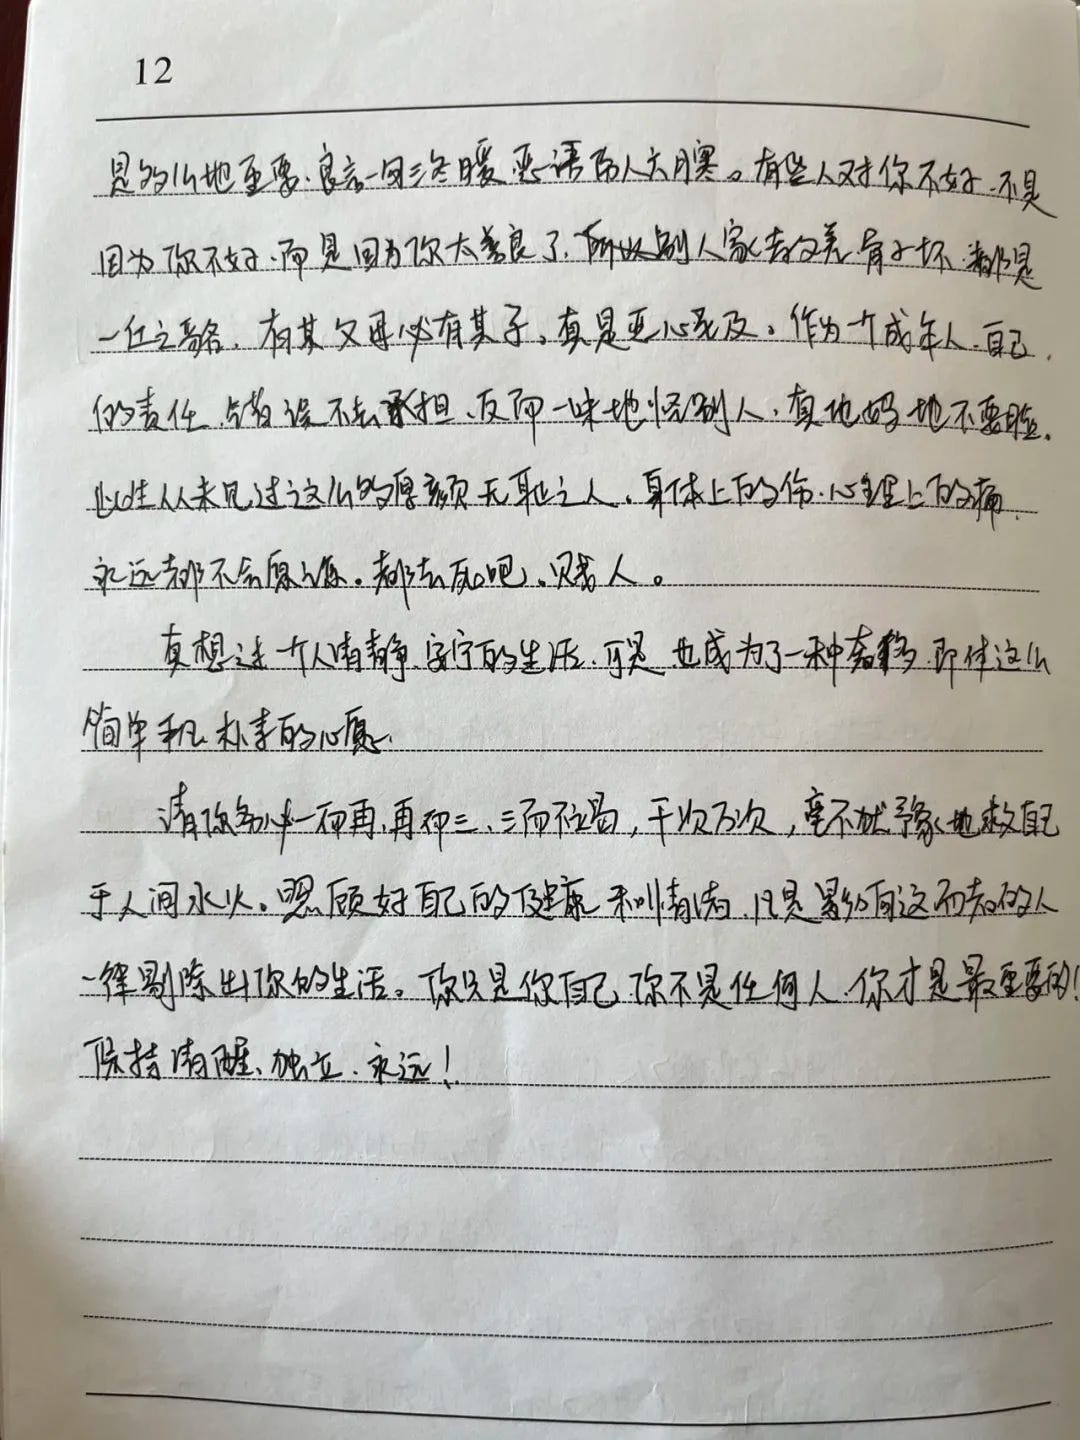 12
是多么地重要。良言一句三冬暖，恶语伤人六月寒。有些人对你不好，不是
因为你不好，而是因为你太善良了，所以别人家去父差，骨子坏，都是
一丘之貉，有其父母必有其子，真是恶心至及。作为一个成年人，自己
的责任、错误不去承担，反而一味地怪别人，真他妈地不要脸。
此生从未见过这么的厚颜无耻之人，身体上的伤，心理上的痛，
永远都不会原谅。都去死吧，贱人。
真想过一个人清静、安宁的生活，可是也成为了一种奢侈，即使这么
简单平凡、朴素的心愿。
请你务必一而再，再而三，三而不竭，千次万次，毫不犹豫地救自己
于人间水火。照顾好自己的健康和情绪，凡是影响这两者的人
一律剔除出你的生活。你只是你自己，你不是任何人，你才是最重要的！
保持清醒、独立，永远！